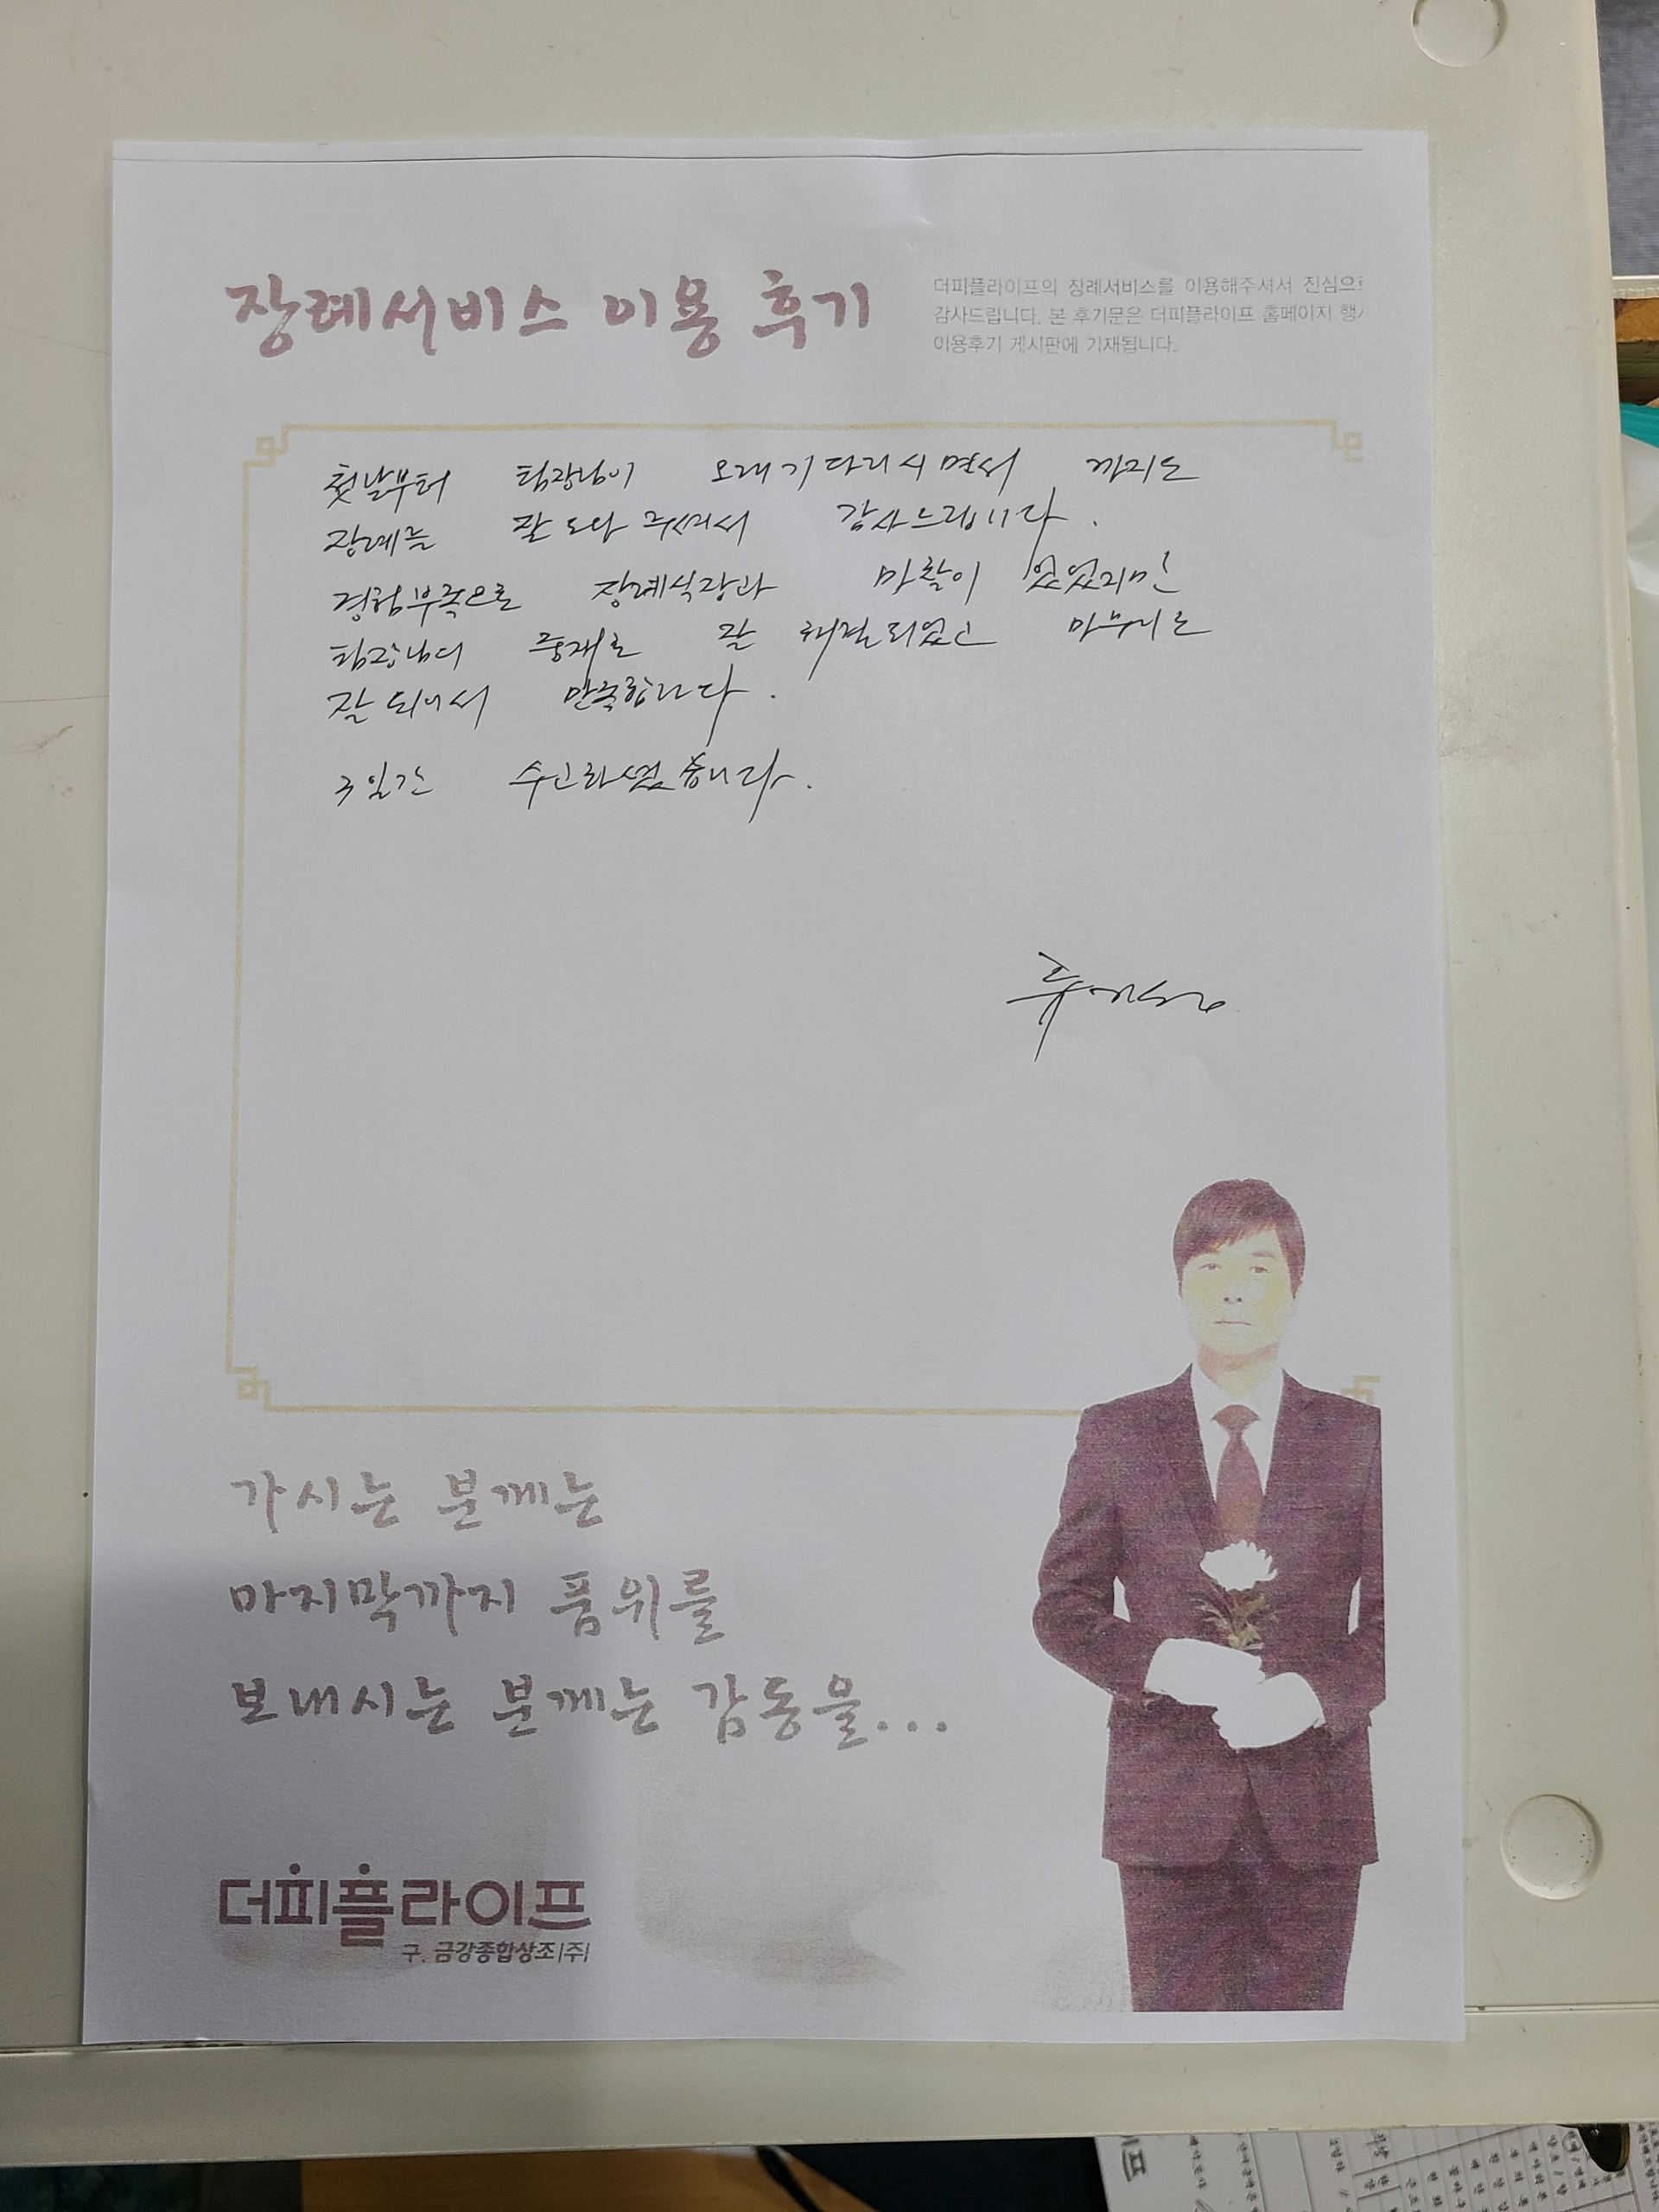 장례서비스 이용 후기
더피플라이프의 장례서비스를 이용해주셔서 진심으로
감사드립니다. 본 후기문은 더피플라이프 홈페이지 행
이용후기 게시판에 기재됩니다.
첫날부터 팀장님이 오래 기다리시면서 까지도
장례를 잘 도와 주셔서 감사드립니다.
경험부족으로 장례식장과 마찰이 있었지만
팀장님의 중재로 잘 해결되었고 마무리도
잘 되어서 만족합니다.
3일간 수고하셨습니다.
가시는 분께는
마지막까지 품위를
보내시는 분께는 감동을...
더피플라이프
구. 금강종합상조(주)